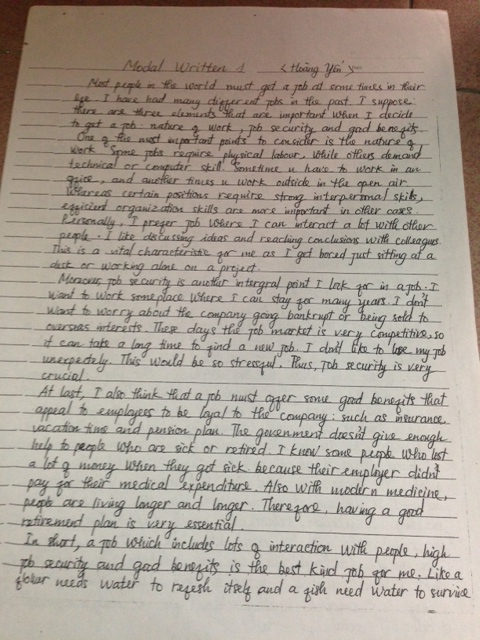 Model Written 1 < Hang You's >
Most people in the world must get a job at some times in their
life. I have had many different jobs in the past. I suppose
there are three elements that are important when I decide
to get a job: nature of work, job security and good benefits.
One of the most important points to consider is the nature of
work. Some jobs require physical labour, while others demand
technical or computer skill. Sometime u have to work in an
and another times u work outside in the open air.
Whereas certain positions require strong interpersonal skills,
efficient organization skills are more important in other cases.
Personally, I prefer job where I can interact a lot with other
people. I like discussing ideas and reaching conclusions with colleagues
This is a vital characteristic for me as I get bored just sitting at a
desk or working alone on a project.
Moreover, job security is another integral point I look for in a job. I
want to work some place where I can stay for many years. I don't
want to worry about the company going bankrupt or being sold to
overseas interests. These days, the job market is very competitive, so
it can take a long time to find a new job. I don't like to lose my job
unexpectedly. This would be so stressful. Thus, job security is very
crucial.
At last, I also think that a job must offer some good benefits that
appeal to employees to be loyal to the company: such as insurance
vacation time and pension plan. The government doesn't give enough
help to people who are sick or retired. I know some people who lost
a lot of money when they got sick because their employer didn't
pay for their medical expenditure. Also with modern medicine,
people are living longer and longer. Therefore, having a good
retirement plan is very essential.
In short, a job which includes lots of interaction with people, high
job security and good benefits is the best kind job for me. Like a
needs water to refresh itself and a fish need water to survive